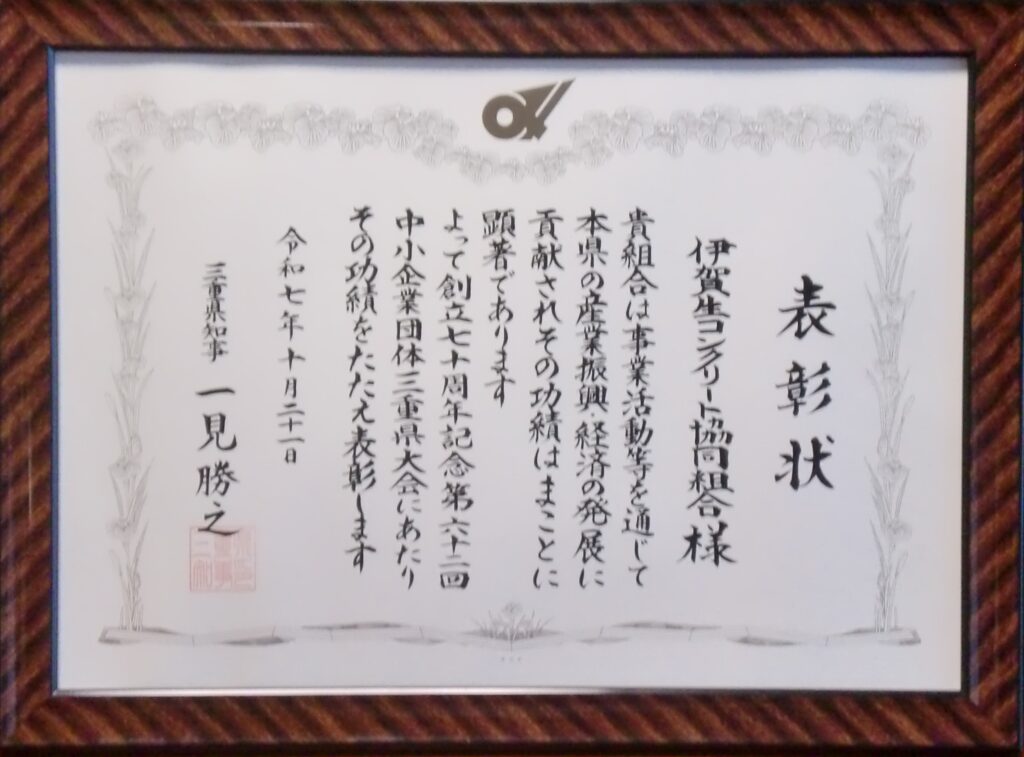 表彰状
伊賀生コンクリート協同組合様
貴組合は事業活動等を通じて
本県の産業振興・経済の発展に
貢献されその功績はまことに
顕著であります
よって創立七十周年記念第六十二回
中小企業団体三重県大会にあたり
その功績をたたえ表彰します
令和七年十月二十一日
三重県知事 一見勝之